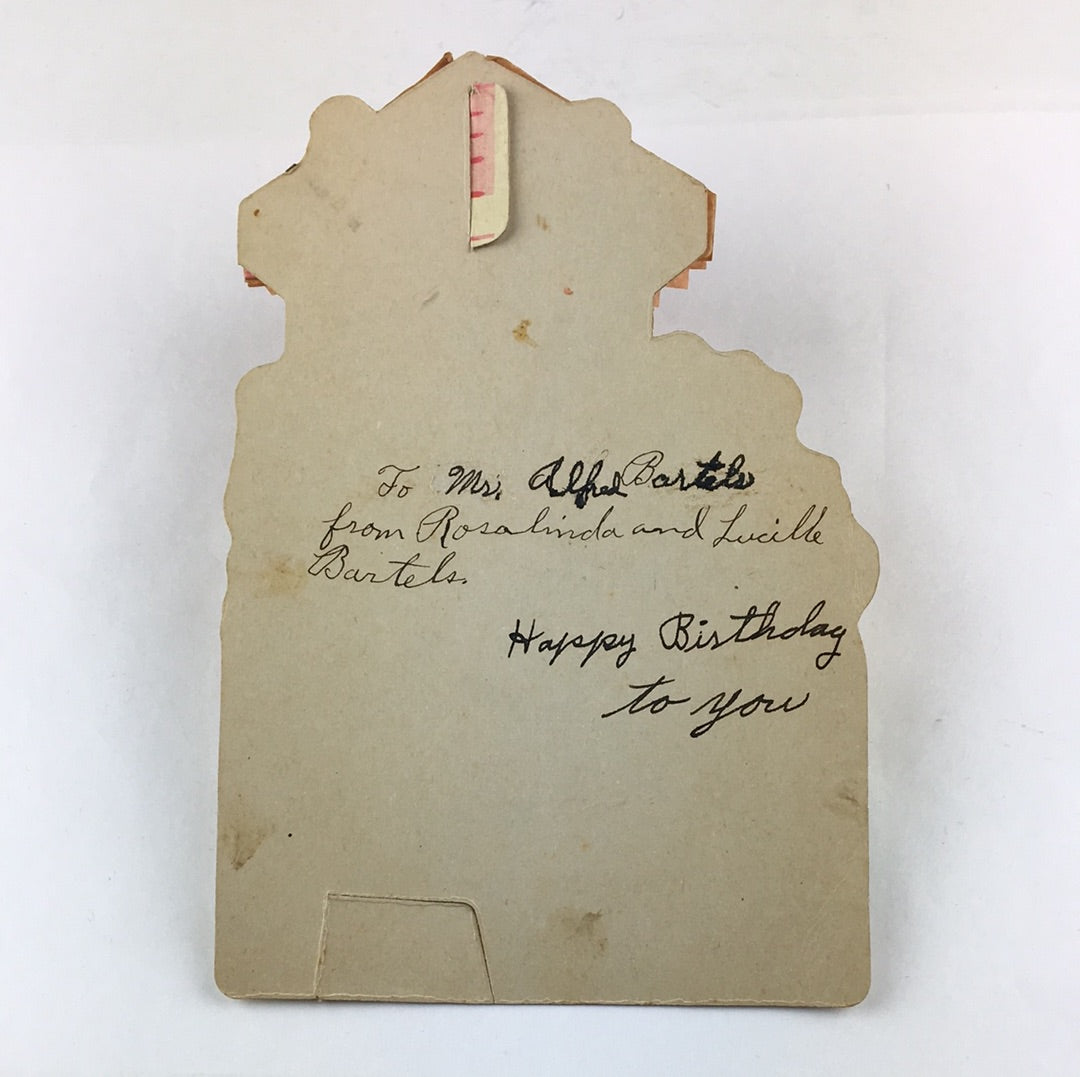 To Mr. Alfred Bartels
from Rosalinda and Lucille
Bartels.
Happy Birthday
to you